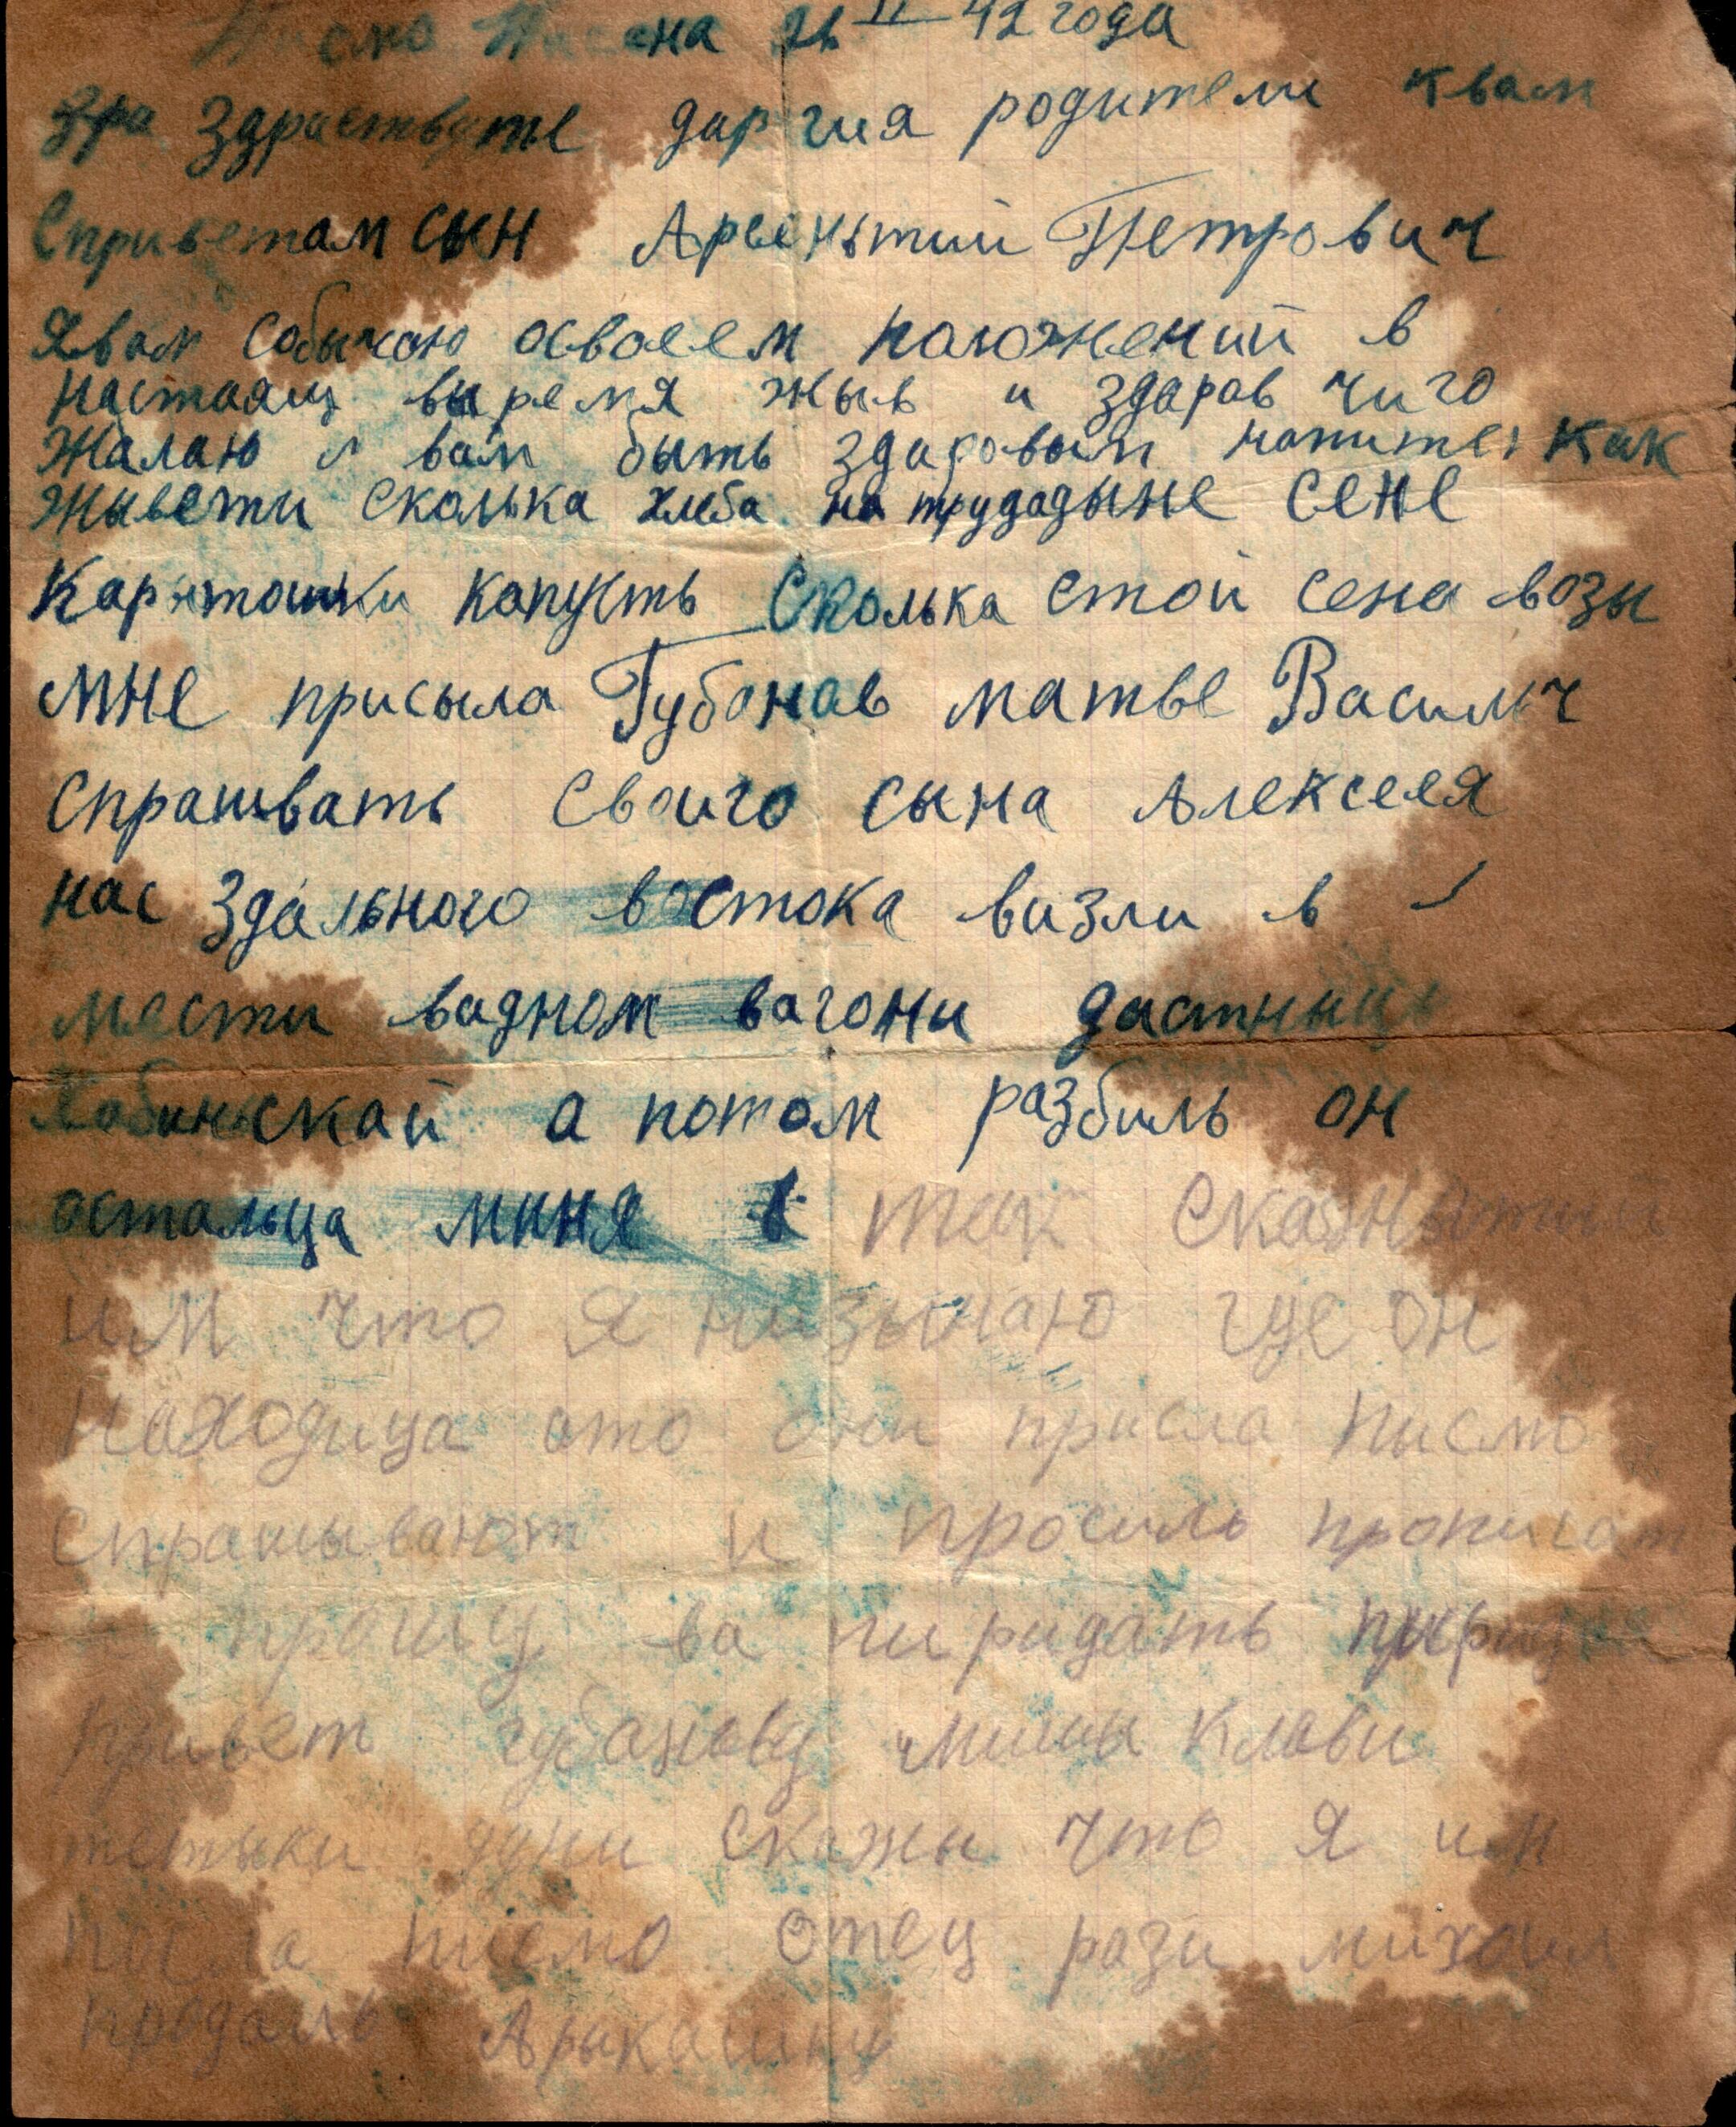 Писмо Писана 26 II 42 года
Зра Здраствуте даргия родители квам
Сприветам сын Арсеньтий Петрович
Явам сабычаю освоеем положений в
настаящ выремя жыв и здарав чиго
жалаю и вам быть здаровым как
жывети сколька хлеба на трудадыне сене
Картошки капусть Сколька стой сена возы
мне присыла Губанав матве Василич
спрашвать своиго сына Алексея
нас здального востока визли в
мести вадном вагони дастныцы
Лабинскай а потом разбиль он
осталица миня в так скажнытий
им что я низынаю где он
находица ото они присла писмо
спрашывают и просиль прописат
прошу ва пиридать
привет губанову миши клави
тетьки скажы что я им
посла писмо отец рази михаил
продаль